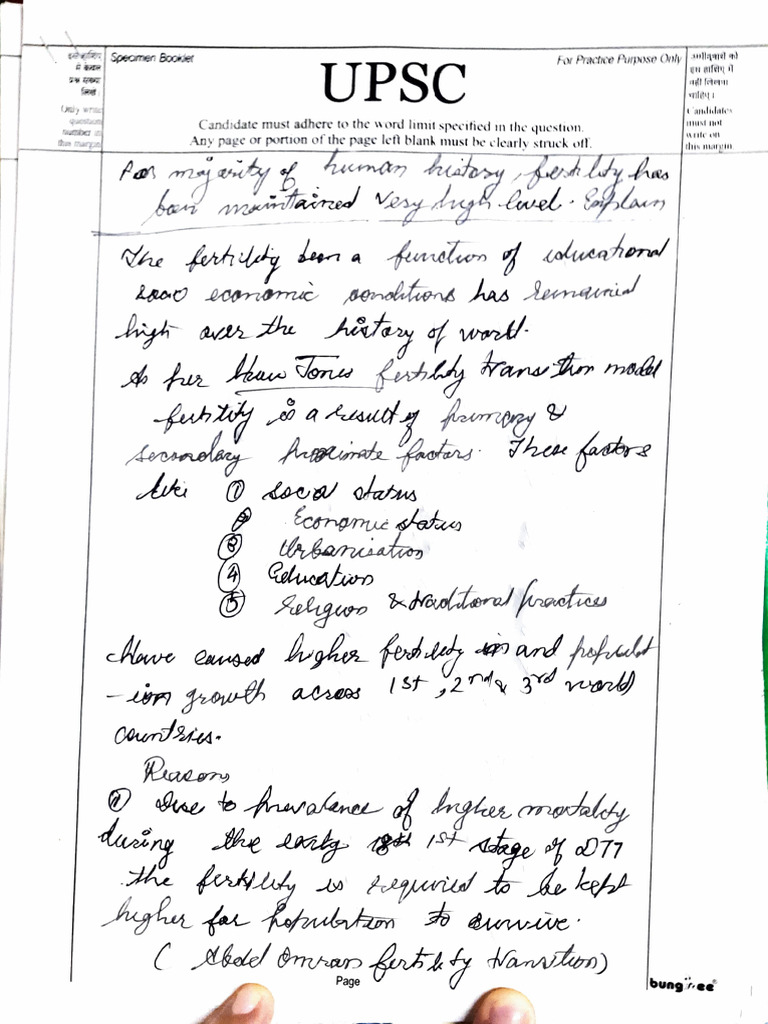 इस हाशिए
में केवल
प्रश्न संख्या
लिखें।
Only write
question
number in
this margin
Specimen Booklet
For Practice Purpose Only
UPSC
Candidate must adhere to the word limit specified in the question.
Any page or portion of the page left blank must be clearly struck off.
उम्मीदवारों को
इस हाशिए में
नहीं लिखना
चाहिए।
Candidates
must not
write on
this margin
For majority of human history, fertility has
been maintained very high level. Explain
The fertility been a function of educational
socio economic conditions has remained
high over the history of world.
As per Huw Jones fertility transition model
fertility is a result of primary &
secondary proximate factors. These factors
like ① social status
② Economic status
③ Urbanisation
④ Education
⑤ religion & traditional practices
have caused higher fertility and populat
-ion growth across 1st, 2nd & 3rd world
countries.
Reasons
① Due to prevalance of higher mortality
during the early 1st stage of DTT
the fertility is required to be kept
higher for population to survive.
( Abdel Omran fertility transition)
Page